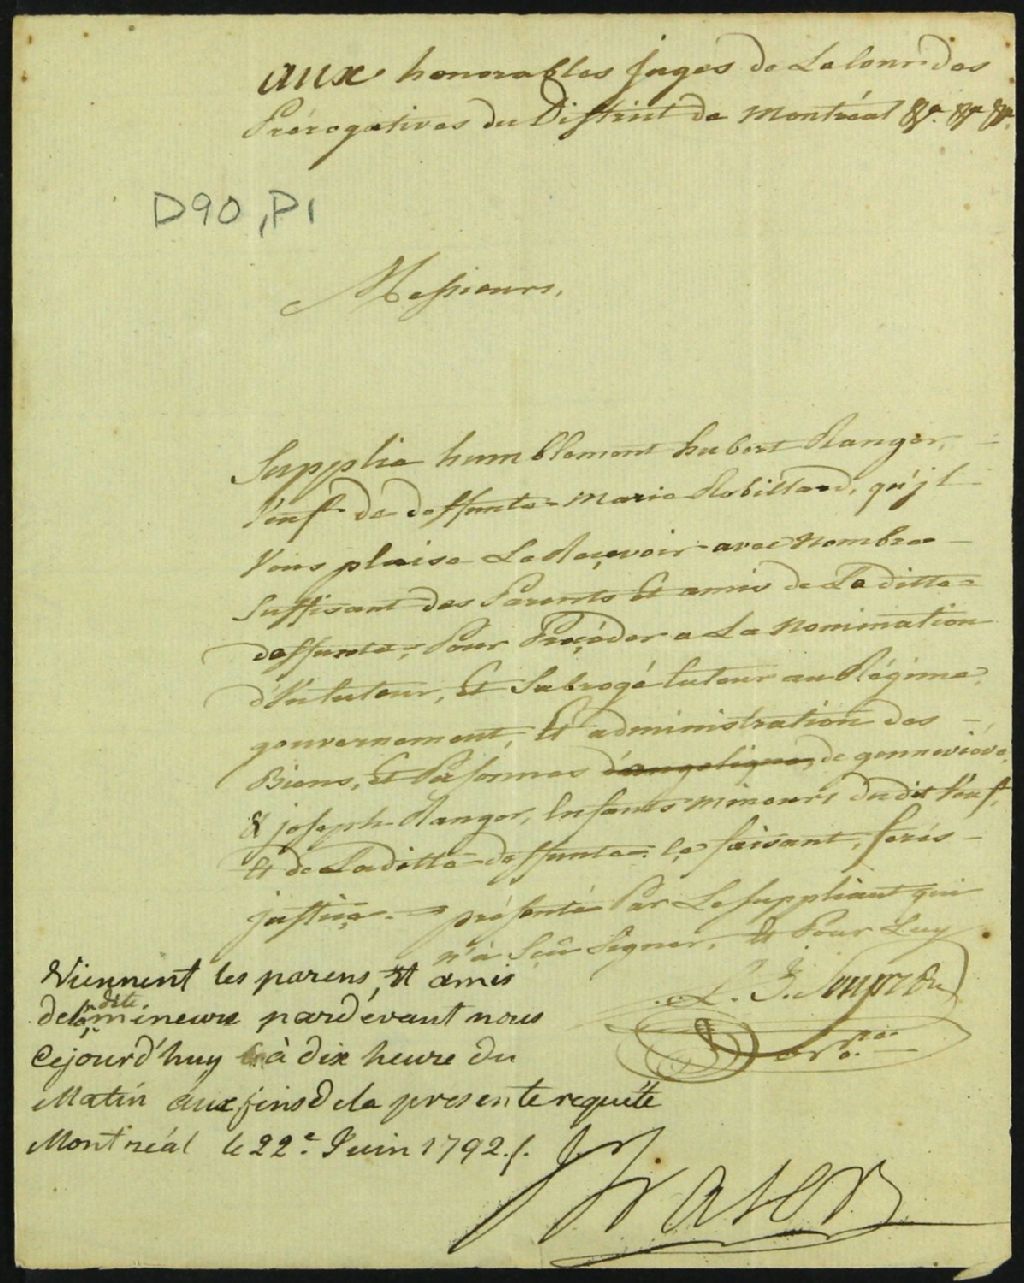 aux honorables juges de La Cour des
Prérogatives du District de Montréal &a. &a. &a.
D90, P1
Messieurs,
Supplie humblement hubert Ranger,
Veuf de deffunte Marie Robillard, qu'jl
Vous plaise Le Reçevoir avec Nombre
Suffisant des Parents Et amis de La ditte
deffunte, Pour Proçéder a La Nomination
d'Un tuteur, Et Subrogé tuteur au Régime,
gouvernement, Et administration des
Biens, Et Personnes d'angelique, de genneviéve,
& joseph Ranger, Enfants mineurs du dit Veuf,
Et de Laditte deffunte. Ce faisant, ferés
justiçe. présenté Par Le Suppliant qui
n'à Sçû Signer, Et Pour Luy
Viennent les parens, et amis
des dits mineurs pardévant nous
Cejourd'huy à dix heure du
Matin aux fins de la presente requête
Montréal le 22e. Juin 1792./.
JFraser